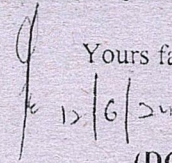 Yours fa
12/6/20
(DC